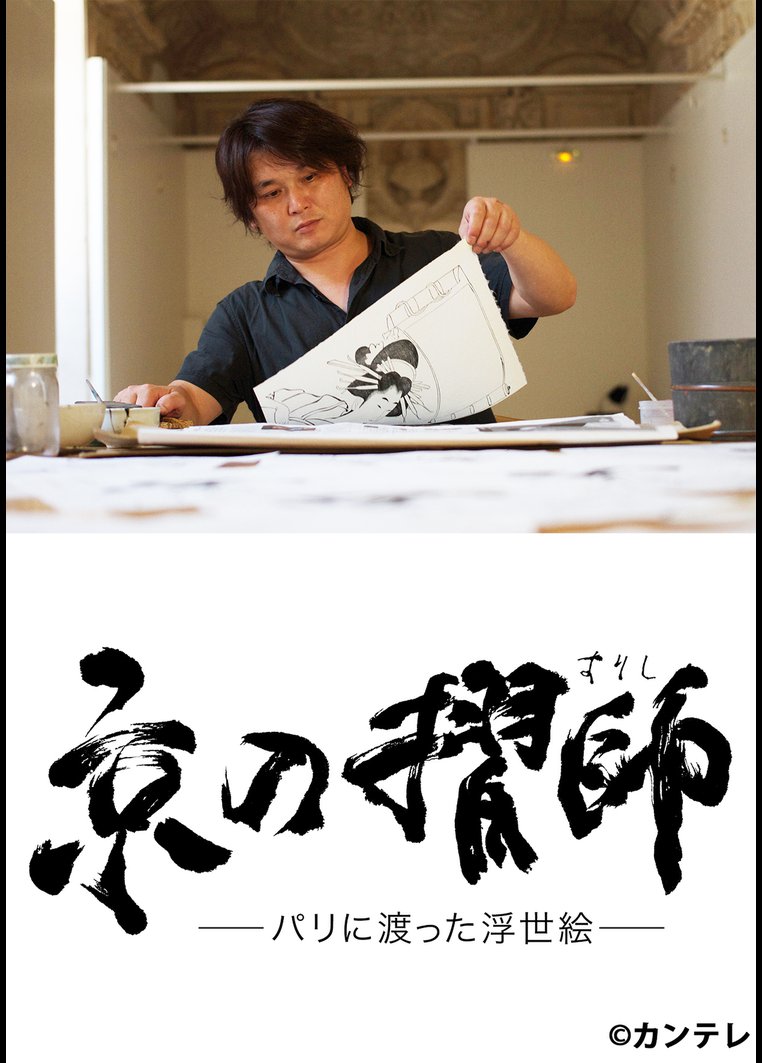 すりし
京の摺師
パリに渡った浮世絵
©カンテレ